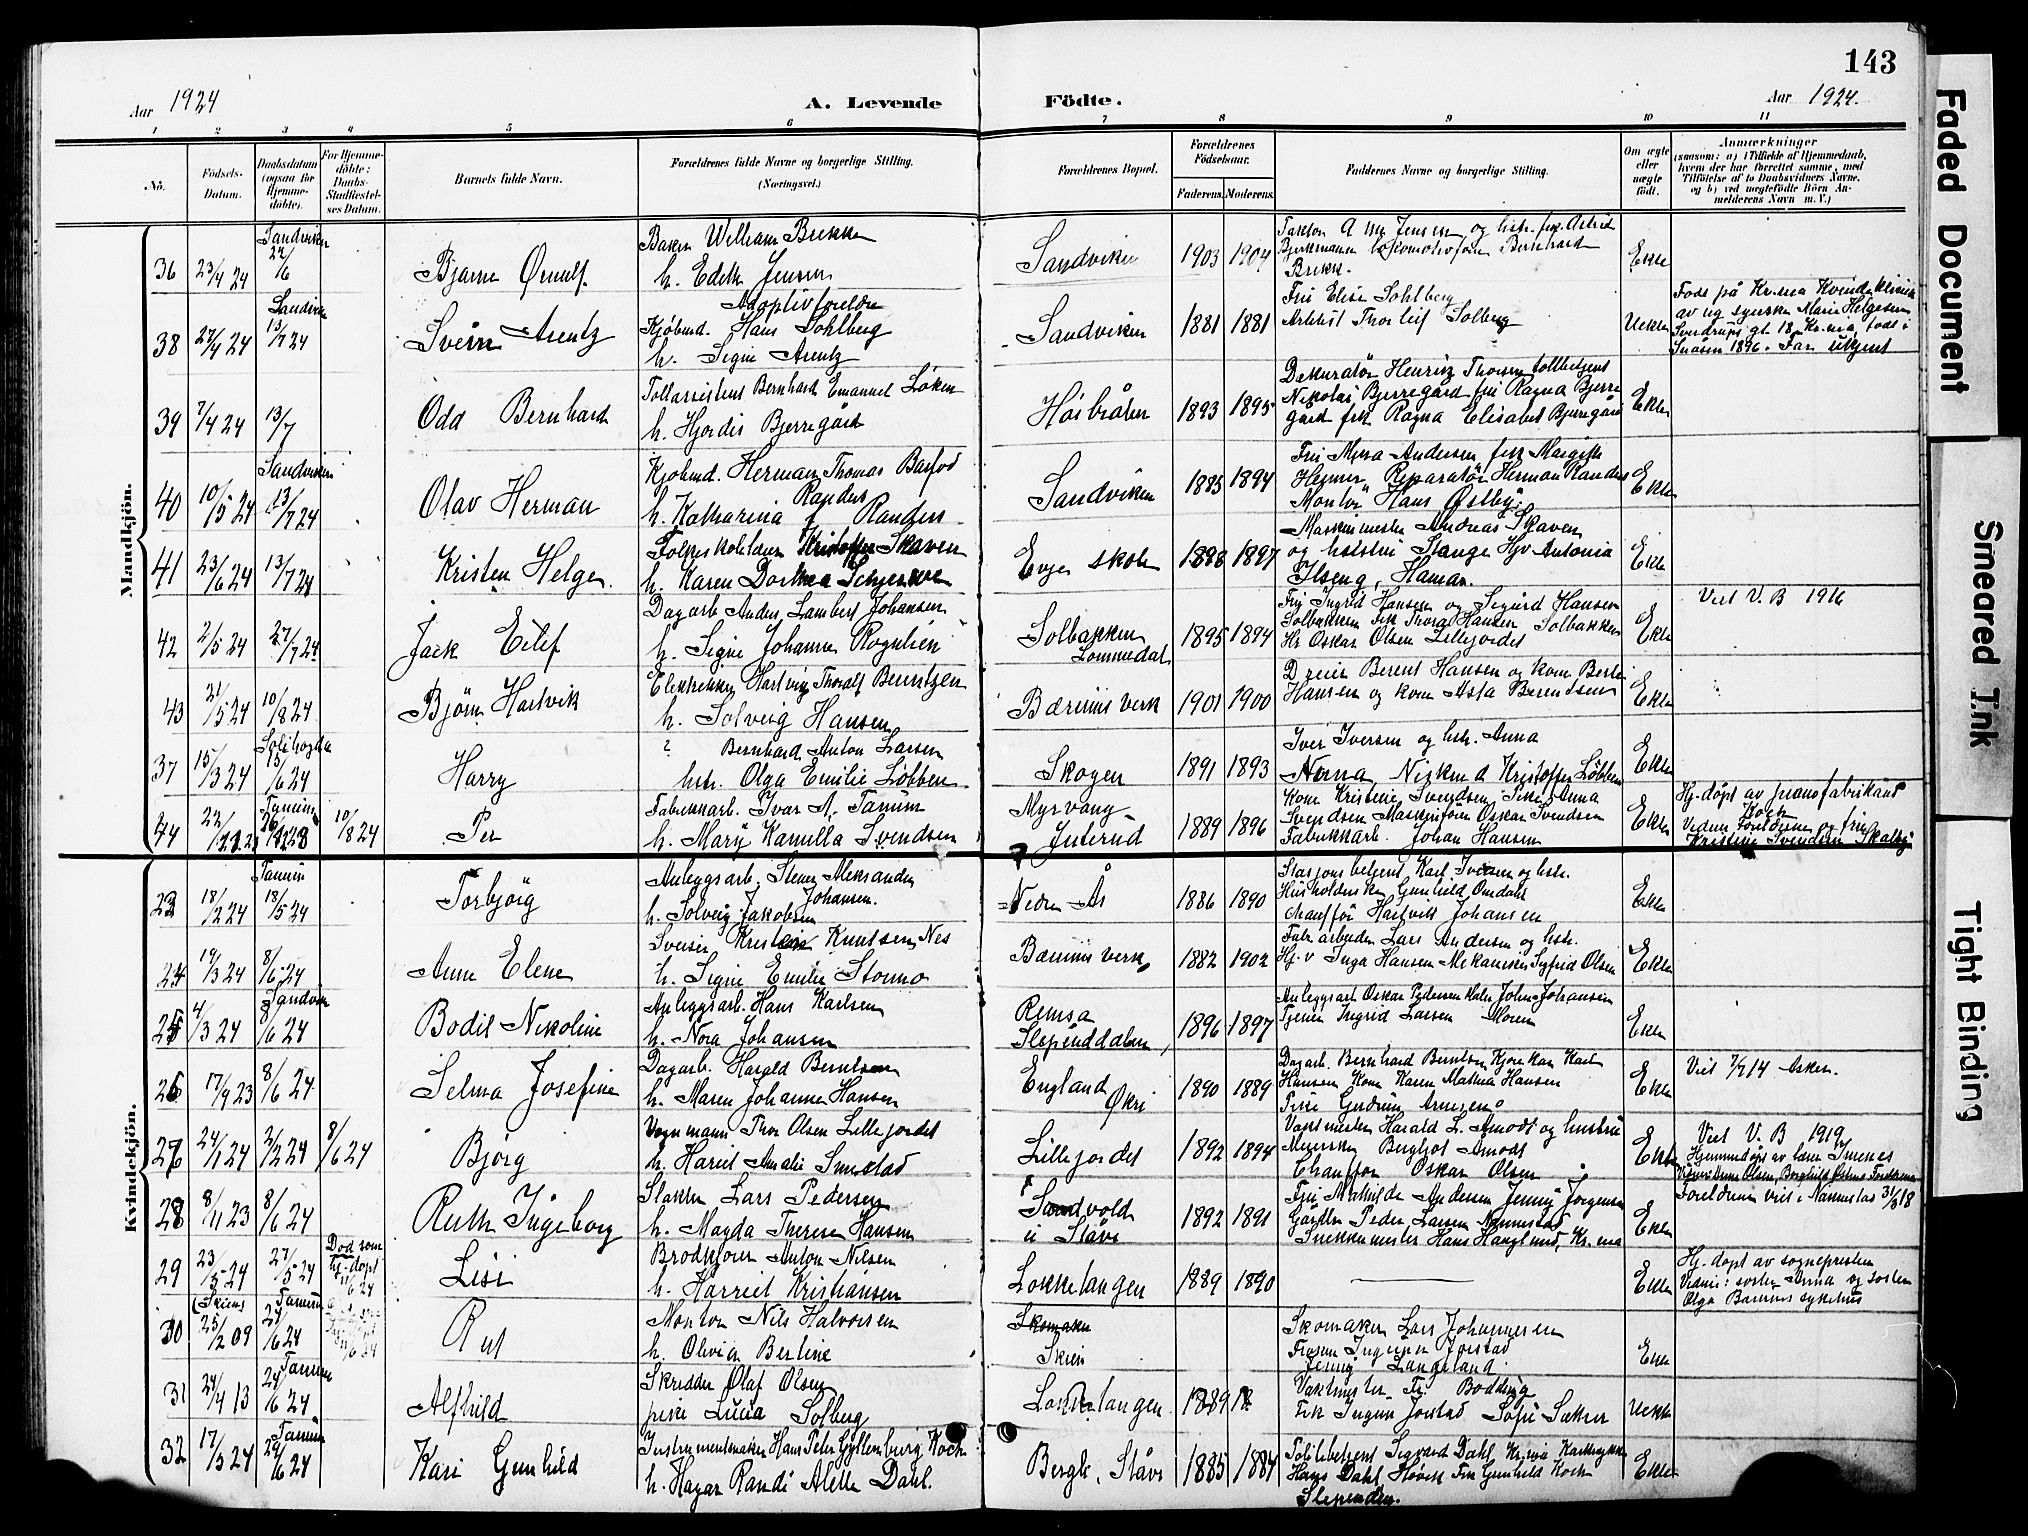 143
Aar 1924
A. Levende Födte.
Aar 1924.
1 2 3 4 5 6 7 8 9 10 11
No.
Födsels-Datum.
Daabsdatum (ogsaa for Hjemmedöbte).
For Hjemmedöbte: Daabs-Stadfæstelses Datum.
Barnets fulde Navn.
Forældrenes fulde Navne og borgerlige Stilling. (Næringsvei.)
Forældrenes Bopæl.
Forældrenes Födselsaar.
Faderens. Moderens.
Faddernes Navne og borgerlige Stilling.
Om ægte eller uægte födt.
Anmærkninger
(saasom: a) i Tilfælde af Hjemmedaab, hvem der har forrettet samme, med Tilföielse af to Daabsvidners Navne, og b) ved uægtefödte Börn Anmelderens Navn m. V.)
Mandkjön.
36 23/4 24 Sandviken 22/6 Bjarne Ørnulf
Baker William Brekke
h. Edith Jensen
Sandviken 1903 1904
Ekte
38 27/4 24 Sandviken 13/7 24 Svein Arentz
Adoptivforeldre
Kjøbmd. Hans Sohlberg
h. Signe Arentz
Sandviken 1881 1881
Fru Elise Sohlberg
Arkitekt Thorleif Solberg
Uekte
Født på Kr.nia Kvindeklinik
av ug syerske Marie Helgesen
Svendrups gt. 18 Kr.nia, født i
Snåsen 1896. Far ukjent
39 7/4 24 13/7 Odd Bernhard
Tollassistent Bernhard Emanuel Løken
h. Hjørdis Bjerregård
Høibråten 1893 1895
Dekoratør Henrik Thoresen tollbetjent
Nikolai Bjerregård fru Ragna Bjerre
gård frk Ragna Elisabet Bjerregård
Ekte
40 10/5 24 Sandviken 13/7 24 Olav Herman
Kjøbmd. Herman Thomas Barfod
Randers
h. Katharina Randers
Sandviken 1885 1894
Fru Mina Andersen frk Margith
Heimer, Reparatør Herman Randers
Montør Hans Østby
Ekte
41 23/6 24 13/7 24 Kristen Helge
Folkeskolelærer Kristoffer Skaven
h. Karen Dorthea
Evje skole 1898 1897
Maskinmester Andreas Skaven
og hustru Stange Hjv Antonia
Ilseng, Hamar.
Ekte
42 2/5 24 27/7 24 Jack Eilef
Dagarb. Anders Lambert Johansen
h. Signe Johanne Rognlien
Solbakken
Lommedal 1895 1894
Fru Ingrid Hansen og Sigurd Hansen
Solbakken Frk Thora Hansen Solbakken
Hr Oskar Olsen Lillejordet
Ekte
Viet V. B 1916
43 21/5 24 10/8 24 Bjørn Hartvik
Elektriker Hartvig Thoralf Berntzen
h. Solveig Hansen
Bærums verk 1901 1900
Dreier Berent Hansen og kone Berte
Hansen og kone Asta Berendsen
Ekte
37 15/3 24 Solihøgda 15/6 24 Harry
? Bernhard Anton Larsen
hstr. Olga Emilie Løbben
Skogen 1891 1893
Iver Iversen og hstr. Anna
Kristoffer Løbben
Ekte
44 10/8 24 Per
Fabrikkarb. Ivar A. Tanum
h. Mary Kamilla Svendsen
Myrvang
Juterud 1889 1896
Kone Kristine Svendsen Pike Anna
Svendsen Maskinfører Oskar Svendsen
Fabrikkarb. Johan Hansen
Ekte
Hj.-døpt av pianofabrikant
Koch
Vidner Foreldrene og fru
Kristine Svendsen Skalby
Kvindekjön.
23 18/2 24 Tanum 18/5 24 Torbjørg
Anleggsarb. Stener Aleksander
Johansen.
h. Solveig Jakobsen
Nedre Ås 1886 1890
Stasjonsbetjent Karl Iversen og hstr.
Husholderske Gunhild Omdahl
chauffør Hartvik Johansen
Ekte
24 19/3 24 8/6 24 Anne Elene
Sveiser Kristian Knutsen Nes
h. Signe Emilie Stormo
Bærums verk 1882 1902
Fabr.arbeider Lars Andersen og hstr.
Hj.v Inga Hansen Mekaniker Sigfrid Olsen
Ekte
25 4/3 24 Sandviken 8/6 24 Bodil Nikoline
Anleggsarb. Hans Karlsen
h. Nora Johansen
Remsa
Slependdalen, 1896 1897
Anleggsarb Oskar Pedersen Maler John Johansen
Tjener Ingrid Larsen Moren
Ekte
26 17/9 23 8/6 24 Selma Josefine
Dagarb. Harald Berntsen
h. Maren Johanne Hansen
England
Økri 1890 1889
Dagarb. Bernhard Berntsen Kjørekar Karl
Hansen Kone Karen Mathea Hansen
Pike Gudrun Arnesen
Ekte
Viet 7/7 14 Asker.
27 24/1 24 2/2 24 8/6 24 Bjørg
Vognmann Thor Olsen Lillejordet
h. Harriet Amalie Smestad
Lillejordet 1892 1894
Vaktmester Harald L. Amodt og hustru
Bergljot Amodt
Chauffør Oskar Olsen
Ekte
Viet V. B 1919
Hjemmedøpt av lærer Smenes
28 8/11 23 8/6 24 Ruth Ingeborg
Slakter Lars Pedersen
h. Magda Therese Hansen
Sandvold
i Stavi 1892 1891
Fru Mathilde Andersen Jenny Jørgensen
Gårdbr. Peder Larsen Nannestad
Snekkermester Hans Hauglund, Kr.nia
Ekte
Foreldrene viet i Nannestad 31/3 18
29 23/5 24 27/5 24 Død som hj-døpt 11/6 24 Lise
Brødkjører Anton Nilsen
h. Harriet Kristiansen
Løkketangen 1889 1890
Ekte
Hj.-døpt av sognepresten
Vidner: søster Anna og søster
Olga Bærums sykehus
30 (Skien) 25/2 09 Tanum 24/6 24 Rut
Montør Nils Halvorsen
h. Olivia Berline
Skomaker
Skien
Skomaker Lars Johannesen
Frøken Ingunn Jorstad
Jenny Langeland
Ekte
31 24/4 13 Tanum 24/6 24 Alfhild
Skredder Olaf Olsen
pike Lucia Solberg
Løkketangen 1889
Vaktmester Fr. Bodding
Frk Ingunn Jorstad Sofie Sæther
Uekte
32 17/3 24 Tanum 29/6 24 Kari Gunhild
Instrumentmaker Hans Peter Gyllenborg Koch
h. Hagar Randi Alette Dahl.
Bergli, Stavi 1885 1884
Politibetjent Sigvard Dahl Kr.nia
Hans Dahl Høvik Fru Gunhild Koch
Slependen.
Ekte
Faded Document
Smeared Ink
Tight Binding